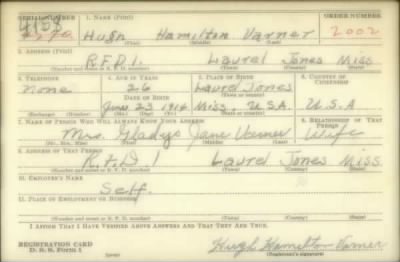 SERIAL NUMBER 1. NAME (Print) ORDER NUMBER
Hugh Hamilton Varner 2002
(First) (Middle) (Last)
2. ADDRESS (Print)
R.F.D. 1 Laurel Jones Miss
(Number and street or R. F. D. number) (Town) (County) (State)
3. TELEPHONE 4. AGE IN YEARS 5. PLACE OF BIRTH 6. COUNTRY OF CITIZENSHIP
none 26 Laurel Jones
DATE OF BIRTH
June 23 1914 Miss. U.S.A. U.S.A
(Exchange) (Number) (Mo.) (Day) (Yr.) (State or country)
7. NAME OF PERSON WHO WILL ALWAYS KNOW YOUR ADDRESS 8. RELATIONSHIP OF THAT PERSON
Mrs. Gladys Jane Varner Wife
(Mr., Mrs., Miss) (First) (Middle) (Last)
9. ADDRESS OF THAT PERSON
R.F.D. 1 Laurel Jones Miss.
(Number and street or R. F. D. number) (Town) (County) (State)
10. EMPLOYER'S NAME
Self.
11. PLACE OF EMPLOYMENT OR BUSINESS
(Number and street or R. F. D. number) (Town) (County) (State)
I AFFIRM THAT I HAVE VERIFIED ABOVE ANSWERS AND THAT THEY ARE TRUE.
REGISTRATION CARD
D. S. S. Form 1
Hugh Hamilton Varner
(Registrant's signature)